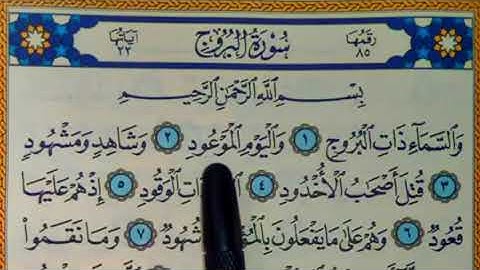 رَقْمُهَا ٨٥ سُورَةُ الْبُرُوجِ آيَاتُهَا ٢٢
بِسْمِ ٱللَّهِ ٱلرَّحْمَٰنِ ٱلرَّحِيمِ
وَٱلسَّمَآءِ ذَاتِ ٱلْبُرُوجِ ١ وَٱلْيَوْمِ ٱلْمَوْعُودِ ٢ وَشَاهِدٍ وَمَشْهُودٍ
٣ قُتِلَ أَصْحَٰبُ ٱلْأُخْدُودِ ٤ ٱلْوَقُودِ ٥ إِذْ هُمْ عَلَيْهَا
قُعُودٌ ٦ وَهُمْ عَلَىٰ مَا يَفْعَلُونَ شُهُودٌ ٧ وَمَا نَقَمُوا۟